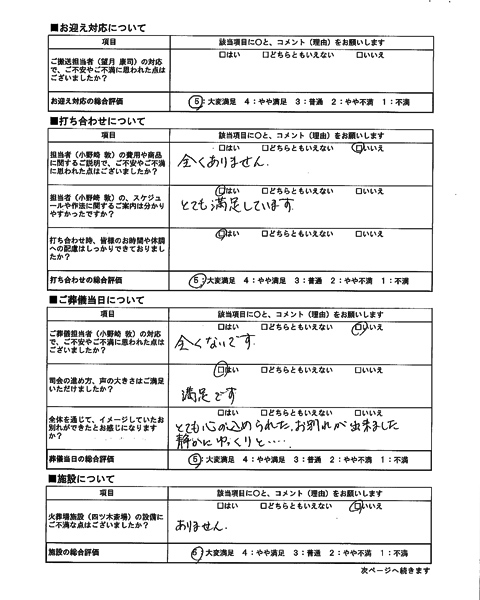 ■お迎え対応について
項目 該当項目に○と、コメント（理由）をお願いします
ご搬送担当者（望月 康司）の対応
で、ご不安やご不満に思われた点は
ございましたか？
□はい □どちらともいえない □いいえ
お迎え対応の総合評価 5：大変満足 4：やや満足 3：普通 2：やや不満 1：不満
■打ち合わせについて
項目 該当項目に○と、コメント（理由）をお願いします
担当者（小野崎 敦）の費用や商品
に関するご説明で、ご不安やご不満
に思われた点はございましたか？
□はい □どちらともいえない □いいえ
全くありません.
担当者（小野崎 敦）の、スケジュ
ールや作法に関するご案内は分かり
やすかったですか？
□はい □どちらともいえない □いいえ
とても満足しています.
打ち合わせ時、皆様のお時間や体調
への配慮はしっかりできておりまし
たか？
□はい □どちらともいえない □いいえ
打ち合わせの総合評価 5：大変満足 4：やや満足 3：普通 2：やや不満 1：不満
■ご葬儀当日について
項目 該当項目に○と、コメント（理由）をお願いします
ご葬儀担当者（小野崎 敦）の対応
で、ご不安やご不満に思われた点は
ございましたか？
□はい □どちらともいえない □いいえ
全くないです.
司会の進め方、声の大きさはご満足
いただけましたか？
□はい □どちらともいえない □いいえ
満足です
全体を通じて、イメージしていたお
別れができたとお感じになります
か？
□はい □どちらともいえない □いいえ
とても心の込められた.お別れが出来ました
静かにゆっくりと・・・.
葬儀当日の総合評価 5：大変満足 4：やや満足 3：普通 2：やや不満 1：不満
■施設について
項目 該当項目に○と、コメント（理由）をお願いします
火葬場施設（四ツ木斎場）の設備に
ご不満な点はございましたか？
□はい □どちらともいえない □いいえ
ありません.
施設の総合評価 5：大変満足 4：やや満足 3：普通 2：やや不満 1：不満
次ページへ続きます